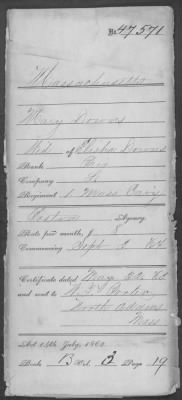 No 47.571
Massachusetts
Mary Downs
Wid of Elisha Downs
Rank
Company L
Regiment 1. Mass Cavy
Boston Agency
Rate per month, $ 8
Commencing Sept 2 64
Certificate dated May 22, 65
and sent to
North Adams
Mass
Act 14th July, 1862.
Book B Vol. 3 Page 19